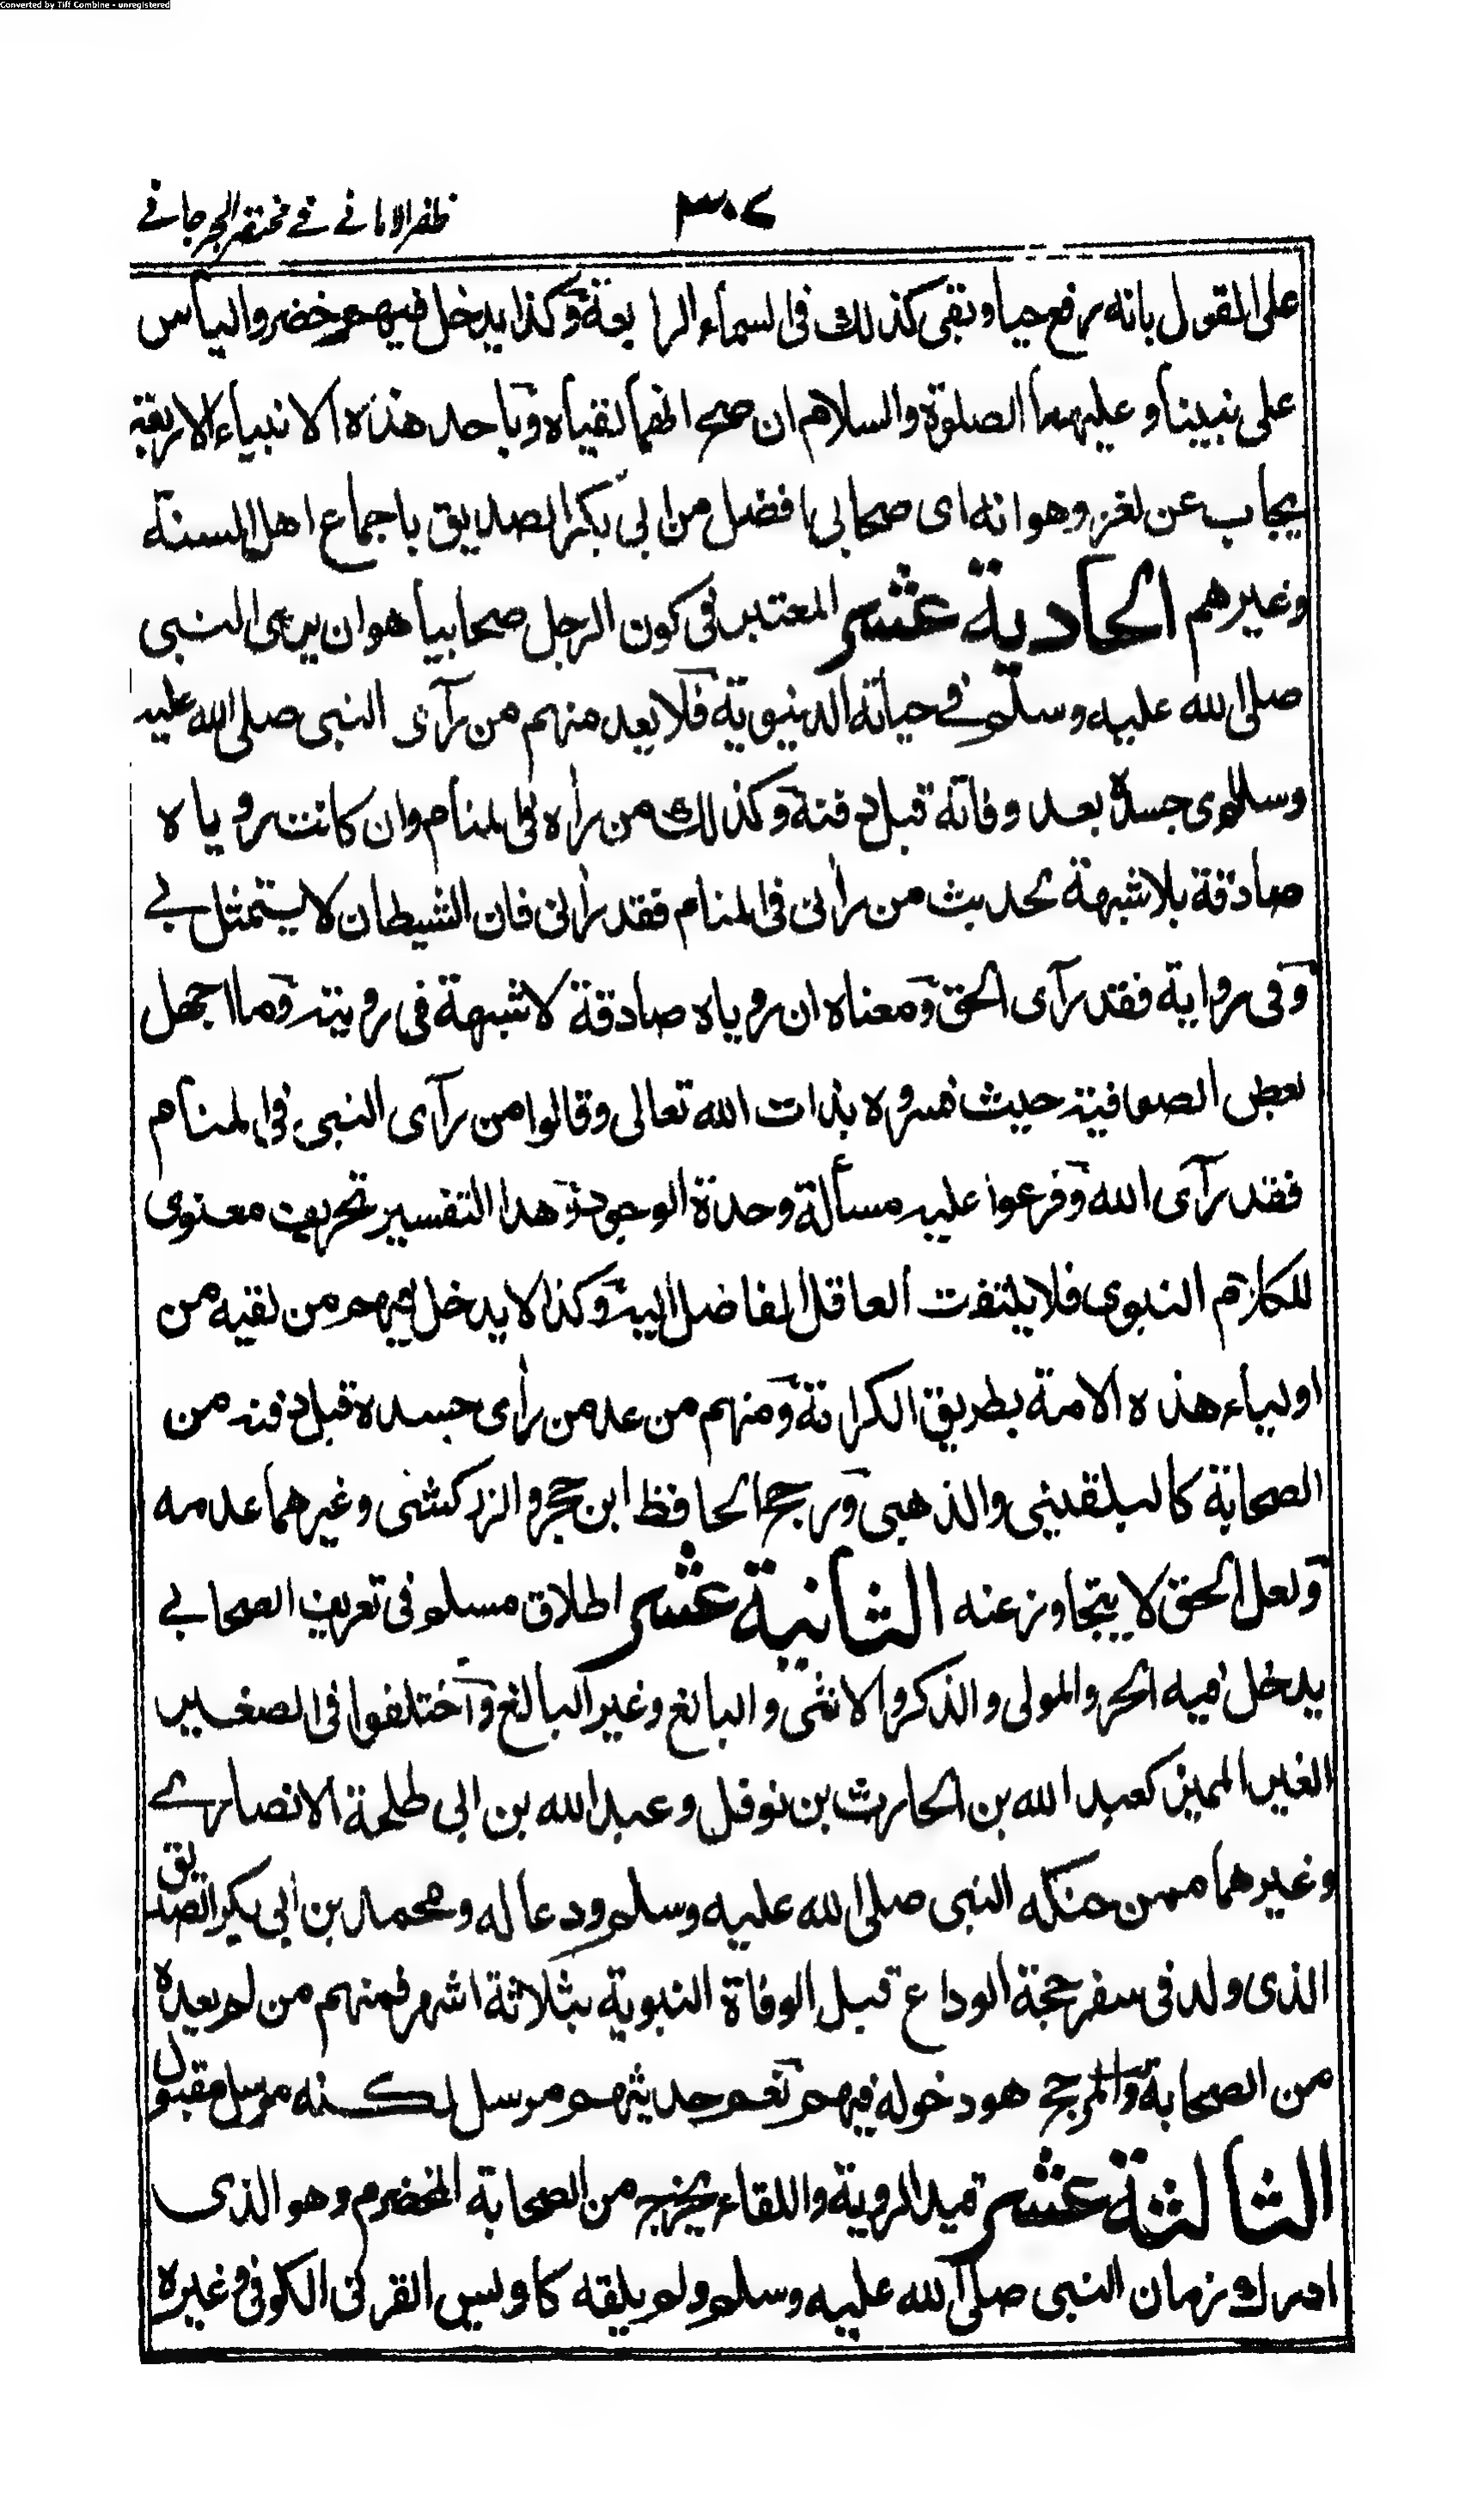 Converted by Tiff Combine - unregistered
ظفر الامانے فے مختصر الجرجانے
٣٠٢
على القول بانه رفع حيا وبقى كذلك فى السماء الرابعة وكذا يدخل فيهم خضر والياس
على نبينا وعليهما الصلوة والسلام ان صح انهما لقياه وباحد هذه الانبياء الاربعة
يجاب عن لغز وهو انه اى صحابى افضل من ابى بكر الصديق باجماع اهل السنة
وغيرهم الحادية عشر المعتبر فى كون الرجل صحابيا هو ان يرى النبى
صلى الله عليه وسلم فے حياته الدنيوية فلا يعد منهم من رآى النبى صلى الله عليه
وسلم وى جسده بعد وفاته قبل دفنه وكذلك من رأه فى المنام وان كانت روياه
صادقة بلا شبهة لحديث من رأنى فى المنام فقد رأنى فان الشيطان لا يتمثل بے
وفى رواية فقد رآى الحق ومعناه ان روياه صادقة لا شبهة فى رويته وما اجهل
بعض الصوفية حيث فسروه بذات الله تعالى وقالوا من رآى النبى فى المنام
فقد رآى الله وفرعوا عليه مسألة وحدة الوجود وهذا التفسير تحريف معنوى
للكلام النبوى فلا يلتفت العاقل الفاضل اليه وكذا لا يدخل فيهم من لقيه من
اولياء هذه الامة بطريق الكرامة ومنهم من عد من رأى جسده قبل دفنه من
الصحابة كالبلقينى والذهبى ورجح الحافظ ابن حجر والزركشى وغيرهما عدمه
ولعل الحق لا يتجاوز عنه الثانية عشر اطلاق مسلم فى تعريف الصحابے
يدخل فيه الحر والمولى والذكر والانثى والبالغ وغير البالغ واختلفوا فى الصغير
الغير المميز كعبد الله بن الحارث بن نوفل وعبد الله بن ابى طلحة الانصارے
وغيرهما ممن حنكه النبى صلى الله عليه وسلم ودعا له ومحمد بن ابى بكر الصديق
الذى ولد فى سفر حجة الوداع قبل الوفاة النبوية بثلاثة اشهر فمنهم من لم يعده
من الصحابة والمرجح هو دخوله فيهم نعم حديثهم مرسل لكنه مرسل مقبول
الثالثة عشر قيد الروية واللقاء يخرج من الصحابة المخضرم وهو الذى
ادرك زمان النبى صلى الله عليه وسلم ولم يلقه كاويس القرنى الكوفى وغيره